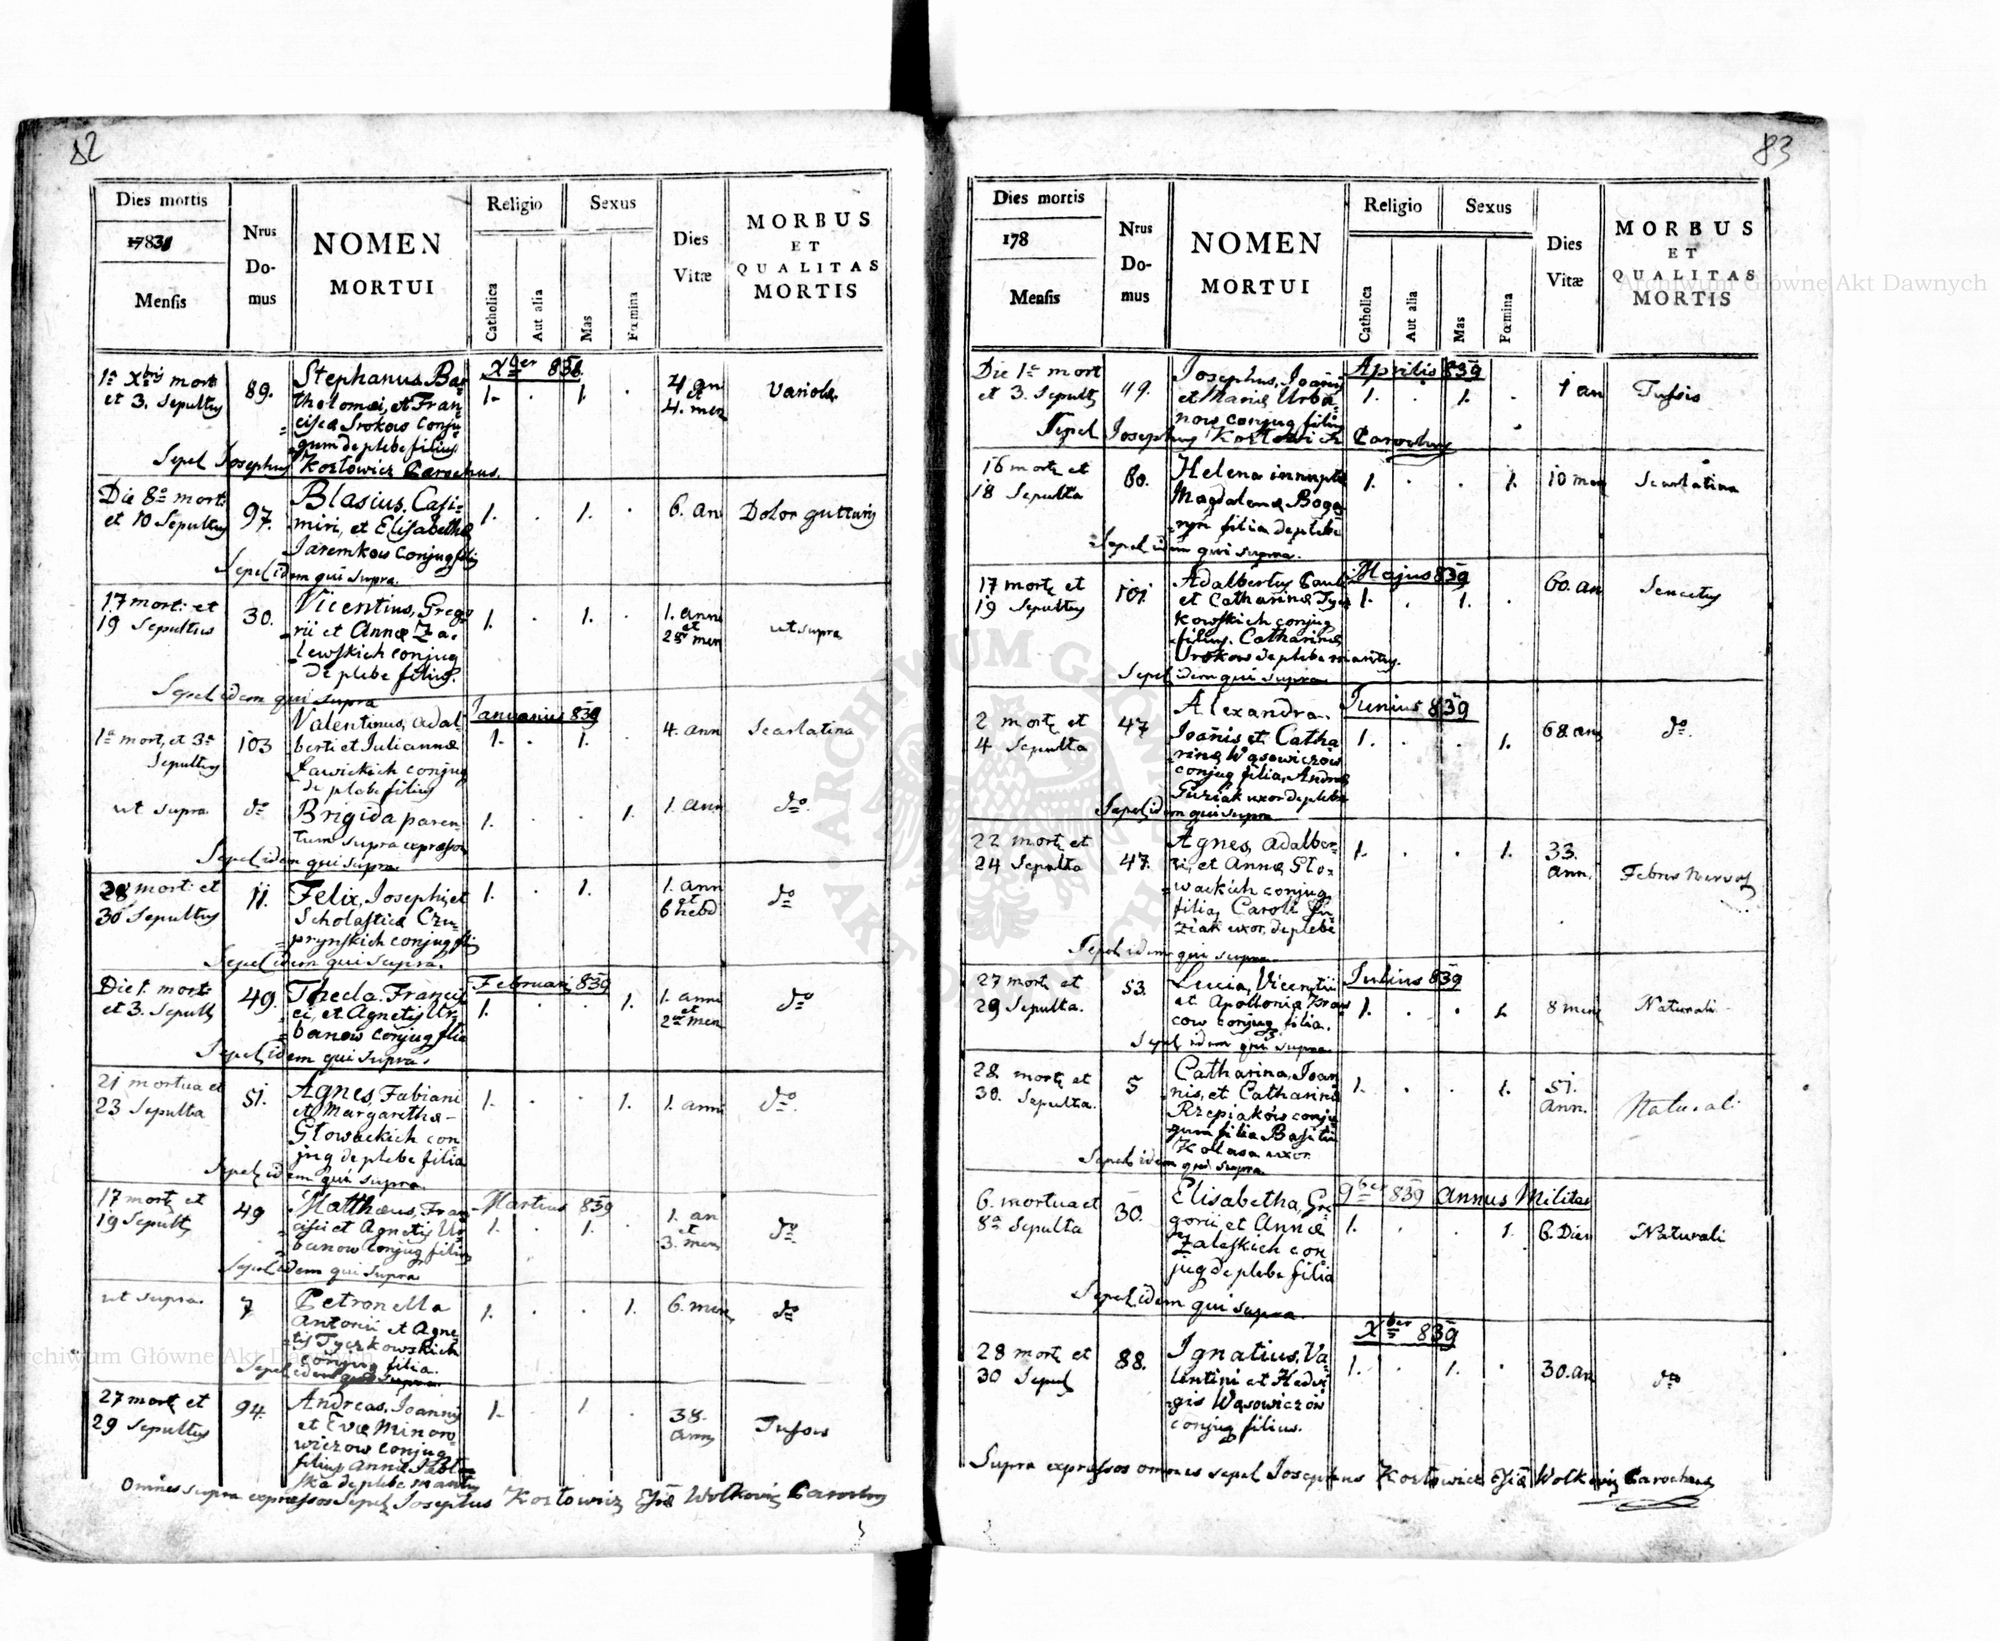 82
Dies mortis
17831
Mensis
Nrus
Do-
mus
NOMEN
MORTUI
Religio
Catholica
Aut alia
Sexus
Mas
Fœmina
Dies
Vitæ
MORBUS
ET
QUALITAS
MORTIS
Xber 838.
1a Xbris mort
et 3. Sepultus
89.
Stephanus Bar
tholomæi, et Fran
cisca Srokow conju
gum de plebe filius
1. . 1. .
4 an
et
4. men
Variola
Sepel Josephus Kozłowicz Parochus.
Die 8a mort:
et 10 Sepultus
97.
Blasius, Casi-
miri, et Elisabethæ
Jaremkow conjug fili
1. . 1. .
6. an
Dolor gutturis
Sepel idem qui supra.
17 mort: et
19 Sepultus
30.
Vicentius, Grego
rii et Annæ Za-
lewskich conjug
de plebe filius.
1. . 1. .
1. anni
et
2 men
ut supra
Sepel idem qui supra
Januarius 839
1a mort, et 3a
Sepultus
103
Valentinus, Adal-
berti et Juliannæ
Ławickich conjug
de plebe filius
1. . 1. .
4. ann
Scarlatina
ut supra
do
Brigida paren-
tum supra expressor
1. . . 1.
1. ann
do.
Sepel idem qui supra.
28 mort: et
30 Sepultus
11.
Felix, Josephi, et
Scholastica Czu-
prynskich conjug fili
1. . 1. .
1. ann
et
6 hebd
do
Sepel idem qui supra.
Februari 839
Die 1. mort:
et 3. Sepult
49.
Thecla Francis
ci, et Agnetis Ur-
banow conjug filia
1. . . 1.
1. anni
et
2 men
do
Sepel idem qui supra.
21 mortua et
23 Sepulta
51.
Agnes, Fabiani
et Margaretha
Głowackich con
jug de plebe filia
1. . . 1.
1. anni
do.
Sepel idem qui supra.
Martius 839
17 mort et
19 Sepult
49
Matthæus, Fran
cisci et Agnetis Ur
banow conjug filius
1. . 1. .
1. an
et
3. men
do
Sepel idem qui supra
ut supra.
7
Petronella
Antonii et Agne
tis Tyczkowskich
conjug filia.
1. . . 1.
6. men
do
Sepel idem qui supra.
27 mort et
29 Sepultus
94.
Andreas, Joannis
et Evæ Minoro
wiczow conjug
filius Annæ
ska de plebe maritus
1. . 1 .
38.
ann
Tussis
Omnes supra expressos Sepel Josephus Kozłowicz Wolkovis Parochus
83
Dies mortis
178
Mensis
Nrus
Do-
mus
NOMEN
MORTUI
Religio
Catholica
Aut alia
Sexus
Mas
Fœmina
Dies
Vitæ
MORBUS
ET
QUALITAS
MORTIS
Aprilis 839
Die 1a mort
et 3. Sepult
49.
Josephus, Joannis
et Mariæ Urba-
now conjug filius
1. . 1. .
1 an
Tussis
Sepel Josephus Kozłowicz Parochus
16 mort et
18 Sepulta
80.
Helena innuptæ
Magdalenæ Boga
filia de plebe
1. . . 1.
10 men
Scarlatina
Sepel idem qui supra.
Majus 839
17 mort et
19 Sepultus
101
Adalbertus Pauli
et Catharinæ Tycz
kowskich conjug
filius. Catharinæ
Srokow de plebe maritus.
1. . 1. .
60. an
Senectus
Sepel idem qui supra
Junius 839
2 mort et
4 Sepulta
47
Alexandra.
Joannis et Catha
rinæ Wąsowiczow
conjug filia, Andreæ
Guziak uxor de plebe
1. . . 1.
68 an
do.
Sepel idem qui supra
22 mort et
24 Sepulta
47.
Agnes, Adalber-
ti, et Annæ Sło-
wackich conjug
filia, Caroli Gu-
ziak uxor de plebe
1. . . 1.
33.
ann.
Febris nervos
Sepel idem qui supra.
Julius 839
27 mort et
29 Sepulta.
53.
Lucia, Vicentii
et Apollonia
cow conjug filia.
1. . . 1.
8 men
Naturali
Sepel idem qui supra.
28. mort et
30. Sepulta.
5
Catharina, Joan
nis, et Catharinæ
Rzepiaków conju
gum filia Basilii
Kollasa uxor
1. . . 1.
51.
ann.
Naturali
Sepel idem qui supra.
9ber 839 Annus Militar
6. mortua et
8a Sepulta
30.
Elisabetha, Gre
gorii, et Annæ
Zaleskich con
jug de plebe filia
1. . . 1.
6. Dies
Naturali
Sepel idem qui supra.
Xber 839
28 mort et
30 Sepul
88.
Ignatius, Va-
lentini et Hedvi
gis Wąsowiczów
conjug filius.
1. . 1. .
30. an
do
Supra expressos omnes sepel Josephus Kozłowicz Wolkovis Parochus
Archiwum Główne Akt Dawnych
Archiwum Główne Akt Dawnych
ARCHIWUM GŁÓWNE AKT DAWNYCH